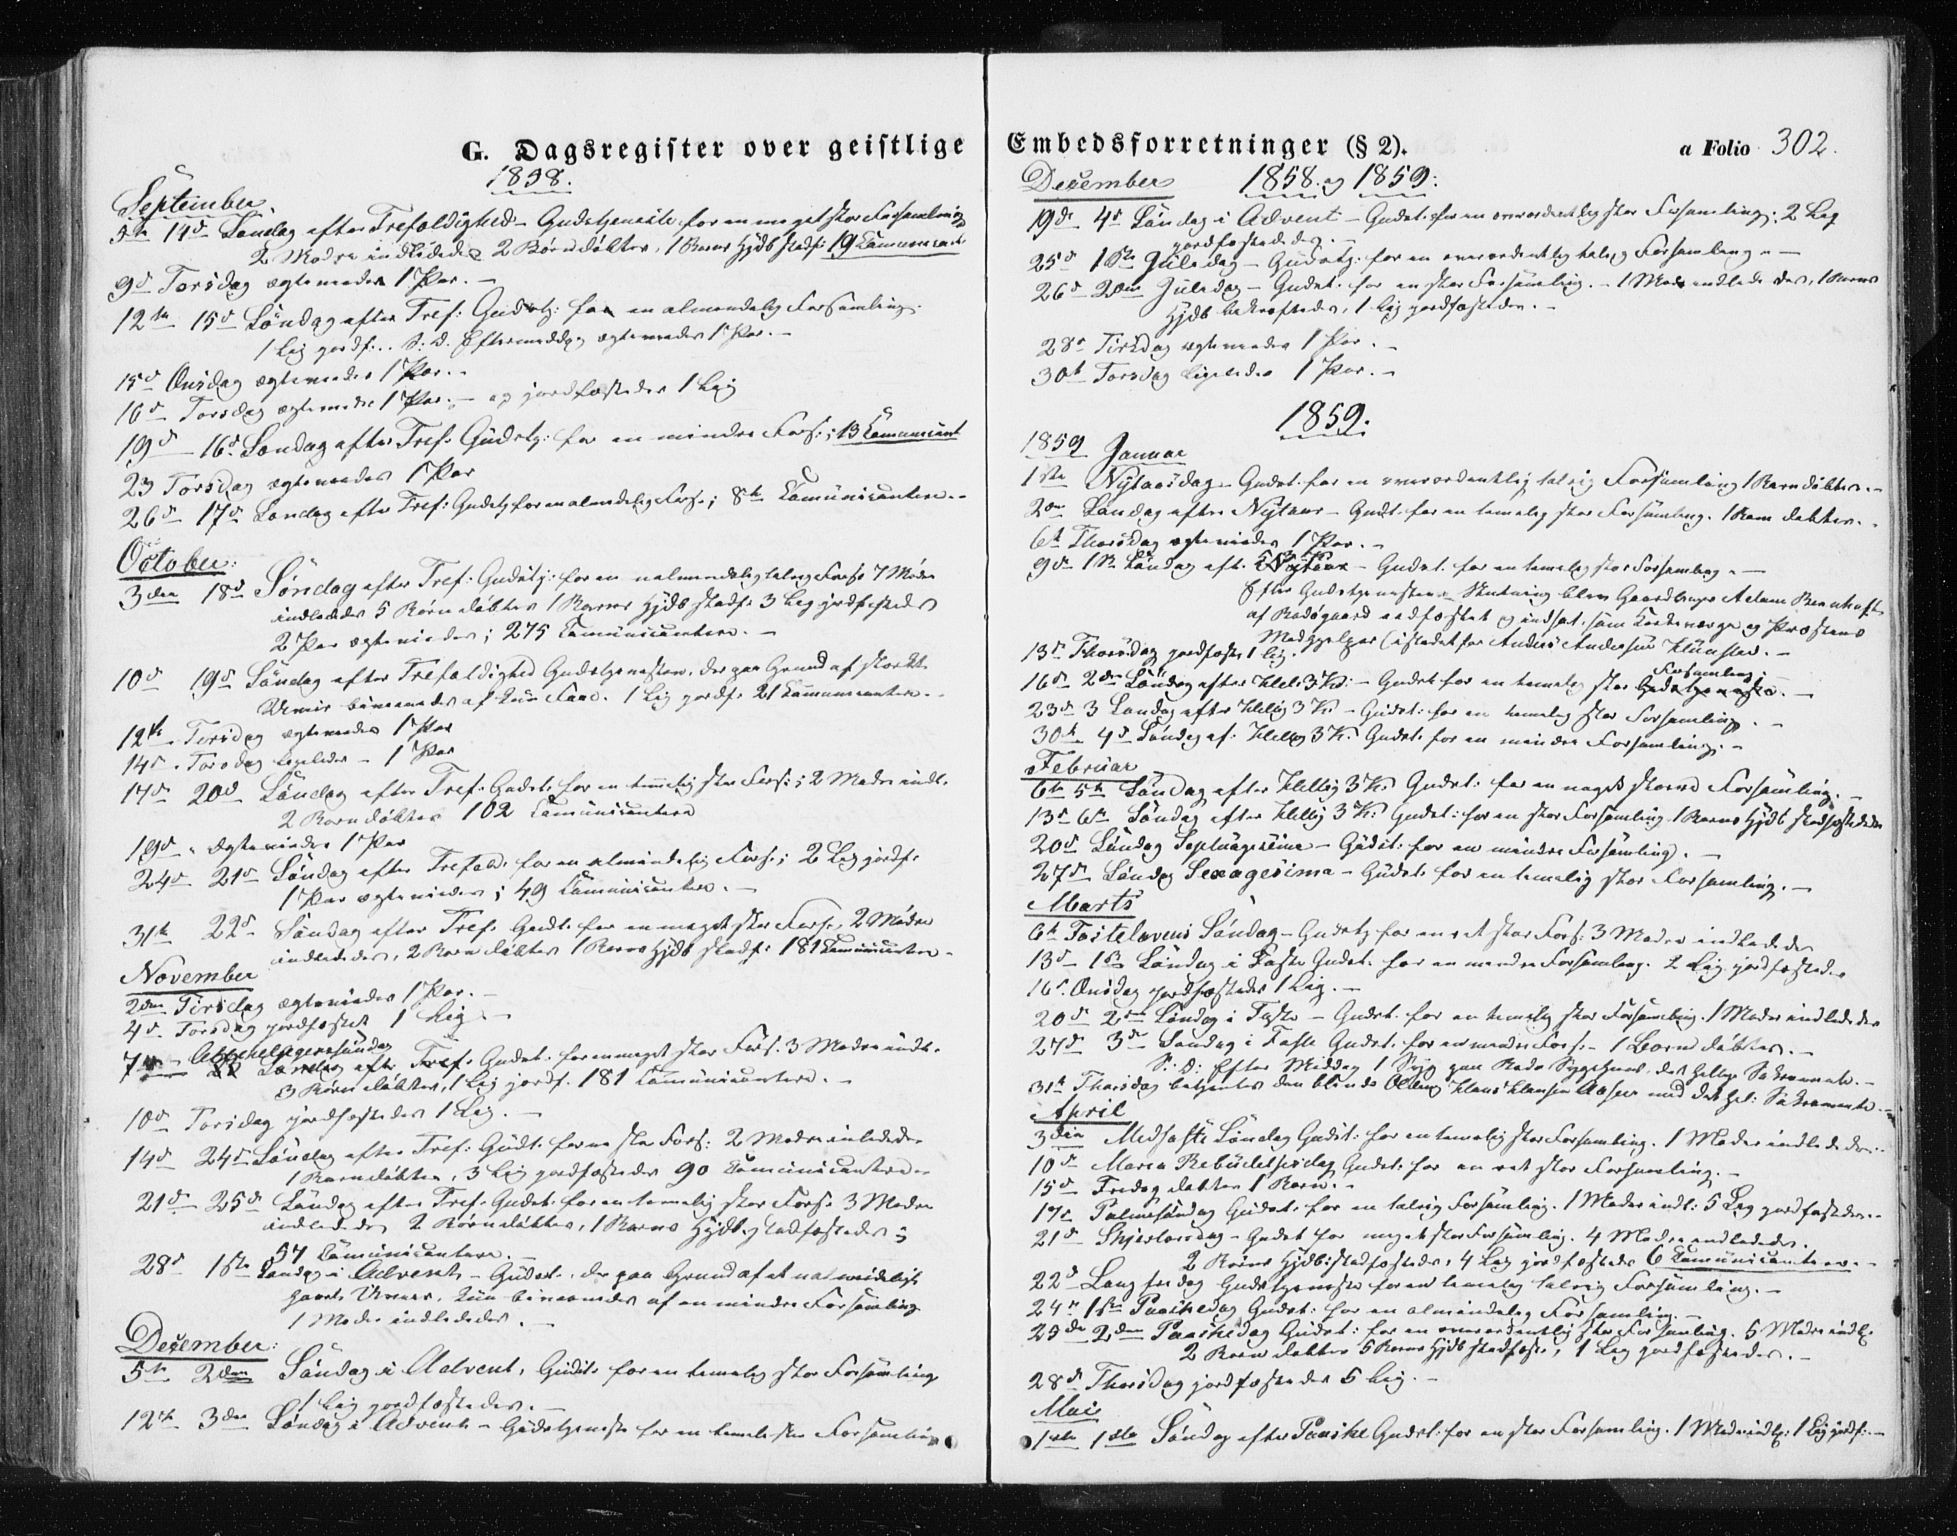 G. Dagsregister over geistlige
1858.
September.
5te 14d Søndag efter Trefoldighed – Gudstjeneste for en meget stor Forsamling
2 Mødre indlededes 2 Børn døbtes, 1 Barns Hjdb stadf: 19 Communicant
9d Torsdag ægteviedes 1 Par. –
12te 15d Søndag efter Tref: Gudstj: for en almendelig Forsamling.
1 Lig jordf:. S: D. Eftermiddag ægteviedes 1 Par. –
15d Onsdag ægteviedes 1 Par. –
16d Torsdag ægteviedes 1 Par. – og jordfæstedes 1 Lig
19d – 16d Søndag efter Tref: Gudstj: for en mindre Fors:; 13 Communicant
23 Torsdag ægteviedes 1 Par
26d 17d Søndag efter Tref: Gudstj for en almendelig Fors:; 8te Communicantere. –
October:
3die 18d Søndag efter Tref: Gudstj: for en ualmendelig talrig Fors: 7 Mødre
indlededes 5 Børn døbtes 1 Barns Hjdb stadf: 3 Lig jordfæstedes
2 Par ægteviedes; 275 Communicantere. –
10d 19d Søndag efter Trefoldighed Gudstjenesten, der paa Grund af stærkt
Uveir bivaanedes af kun Faae. 1 Lig jordf: 21 Communicantere. –
12te. Tirsdag ægteviedes 1 Par
14d. Torsdag ligeledes – 1 Par
17d 20d Søndag efter Tref: Gudst: for en temelig stor Fors:; 2 Mødre indl.
2 Børn døbtes 102 Communicantere
19d. ægteviedes 1 Par
24d 21d Søndag efter Trefold: for en almindelig Fors:; 2 Lig jordf:
1 Par ægteviedes; 49 Communicantere. –
31te 22d Søndag efter Tref: Gudt: for en meget stor Fors:, 2 Mødre
indlededes, 2 Børn døbtes 1 Barns Hjdb stadf: 181 Communicantere –
November
2den Tirsdag ægteviedes 1 Par. –
4d Torsdag jordfæstet 1 Lig. –
7de Allehelgenssøndag Søndag efter Tref: Gudst: for en meget stor Fors: 3 Mødre indl:
3 Børn døbtes, 1 Lig jordf. 181 Communicantere. –
10d Torsdag jordfæstedes 1 Lig. –
14d 24d Søndag efter Tref: Gudst: for en stor Fors: 2 Mødre inlededes
1 Barn døbtes, 3 Lig jordfæstedes 90 Communicantere –
21de 25de Søndag efter Tref: Gudst: for en temelig stor Fors: 3 Mødre
indlededes 2 Børn døbtes, 1 Barns Hjdb. stadfæstedes;
57 Communicantere. –
28d 1ste Søndag i Advent – Gudst:, der paa Grund af et
Uveir, kun bivaanedes af en mindre Forsamling
1 Moder indlededes. –
December:
5te 2den Søndag i Advent, Gudst: for en temelig stor Forsamling
1 Lig jordfæstedes. –
12te 3die Søndag i Advent – Gudstjeneste for en temelig stor Forsamling
Embedsforretninger (§ 2).
a Folio 302.
December 1858. og 1859.
19de 4d Søndag i Advent – Gudst: for en overordentlig stor Forsamling; 2 Lig
jordfæstedes. –
25d 1ste Juledag – Gudstj: for en overordentlig talrig Forsamling. –
26d 2den Juledag – Gudst: for en stor Forsamling. – 1 Moder indlededes, 1 Barns
Hjdb bekræftedes, 1 Lig jordfæstedes. –
28d Tirsdag ægteviedes 1 Par. –
30te Torsdag ligeledes 1 Par. –
1859.
1859 Januar
1ste Nytaarsdag – Gudst: for en overordentlig talrig Forsamling 1 Barn døbtes. –
2den Søndag efter Nytaar – Gudst: for en temelig stor Forsamling. 1 Barn døbtes. –
6te Thorsdag ægteviedes 1 Par. –
9de 1ste Søndag eft: Nytaar – Gudst: for en temelig stor Forsamling. –
Efter Gudstjenestens Slutning blev Gaardbruger Adam Bernhoft
af Radøgaard edfæstet og indsat som Kirkeværge og Præstens
Medhjelper (istedetfor Anders Andersen
13de Thorsdag jordfæst 1 Lig.
16de 2den Søndag efter Hell: 3 K: – Gudst for en temelig stor Gudstjeneste Forsamling. –
23de 3 Søndag efter Hellig 3 K. – Gudst: for en temelig stor Forsamling. –
30te 4d Søndag ef: Hellig 3 K. Gudst: for en mindre Forsamling. –
Februar
6te 5te Søndag efter Hellig 3 K. Gudst: for en noget større Forsamling. –
13de 6te Søndag efter Hellig 3 K: Gudst: for en stor Forsamling. 1 Barns Hjdb stadfæstedes
20d Søndag Septuagesima – Gudst: for en mindre Forsamling. –
27de Søndag Sexagesima – Gudst: for en temelig stor Forsamling. –
Marts
6te Fastelavens Søndag – Gudstj for en ret stor Fors: 3 Mødre indlededes
13d 1ste Søndag i Faste Gudst: for en mindre Forsamling. 2 Lig jordfæstedes
16d. Onsdag jordfæstedes 1 Lig. –
20d 2den Søndag i Faste – Gudst: for en temelig stor Forsamling. 1 Moder indlededes
27de 3die Søndag i Faste Gudst: for en mindre Fors: – 1 Barn døbtes. –
S: D: Efter Middag 1 Syg paa Syghuus. det hellige Sakramente. –
31te Thorsdag betjentes den blinde Olding Hans Hansen med det hel: Sakramente –
April
3die Midfaste Søndag Gudst: for en temelig stor Forsamling. 1 Moder indlededes. –
10de Maria Bebudelsesdag Gudst: for en ret stor Forsamling. –
15de Fredag døbtes 1 Barn. –
17de Palmesøndag Gudst: for en talrig Forsamling. 1 Moder indl: 5 Lig jordfæstedes. –
21de Skjertorsdag – Gudst for meget stor Forsamling. 4 Mødre indlededes.
2 Børns Hjdb: stadfæstedes, 4 Lig jordfæstedes 6 Communicantere. –
22d Langfredag Gudstjeneste for en temelig talrig Forsamling. –
24de 1ste Paaskedag Gudst: for en almindelig Forsamling. –
25de 2den Paaskedag Gudst: for en overordentlig stor Forsamling. 5 Mødre indl:
2 Børn døbtes 5 Børns Hjdb stadfæst:, 1 Lig jordfæstedes. –
28de Thorsdag jordfæstedes 5 Lig. –
Mai
1ste 1ste Søndag efter Paaske Gudst: for en stor Forsamling. 1 Moder indl: 1 Lig jordf: –